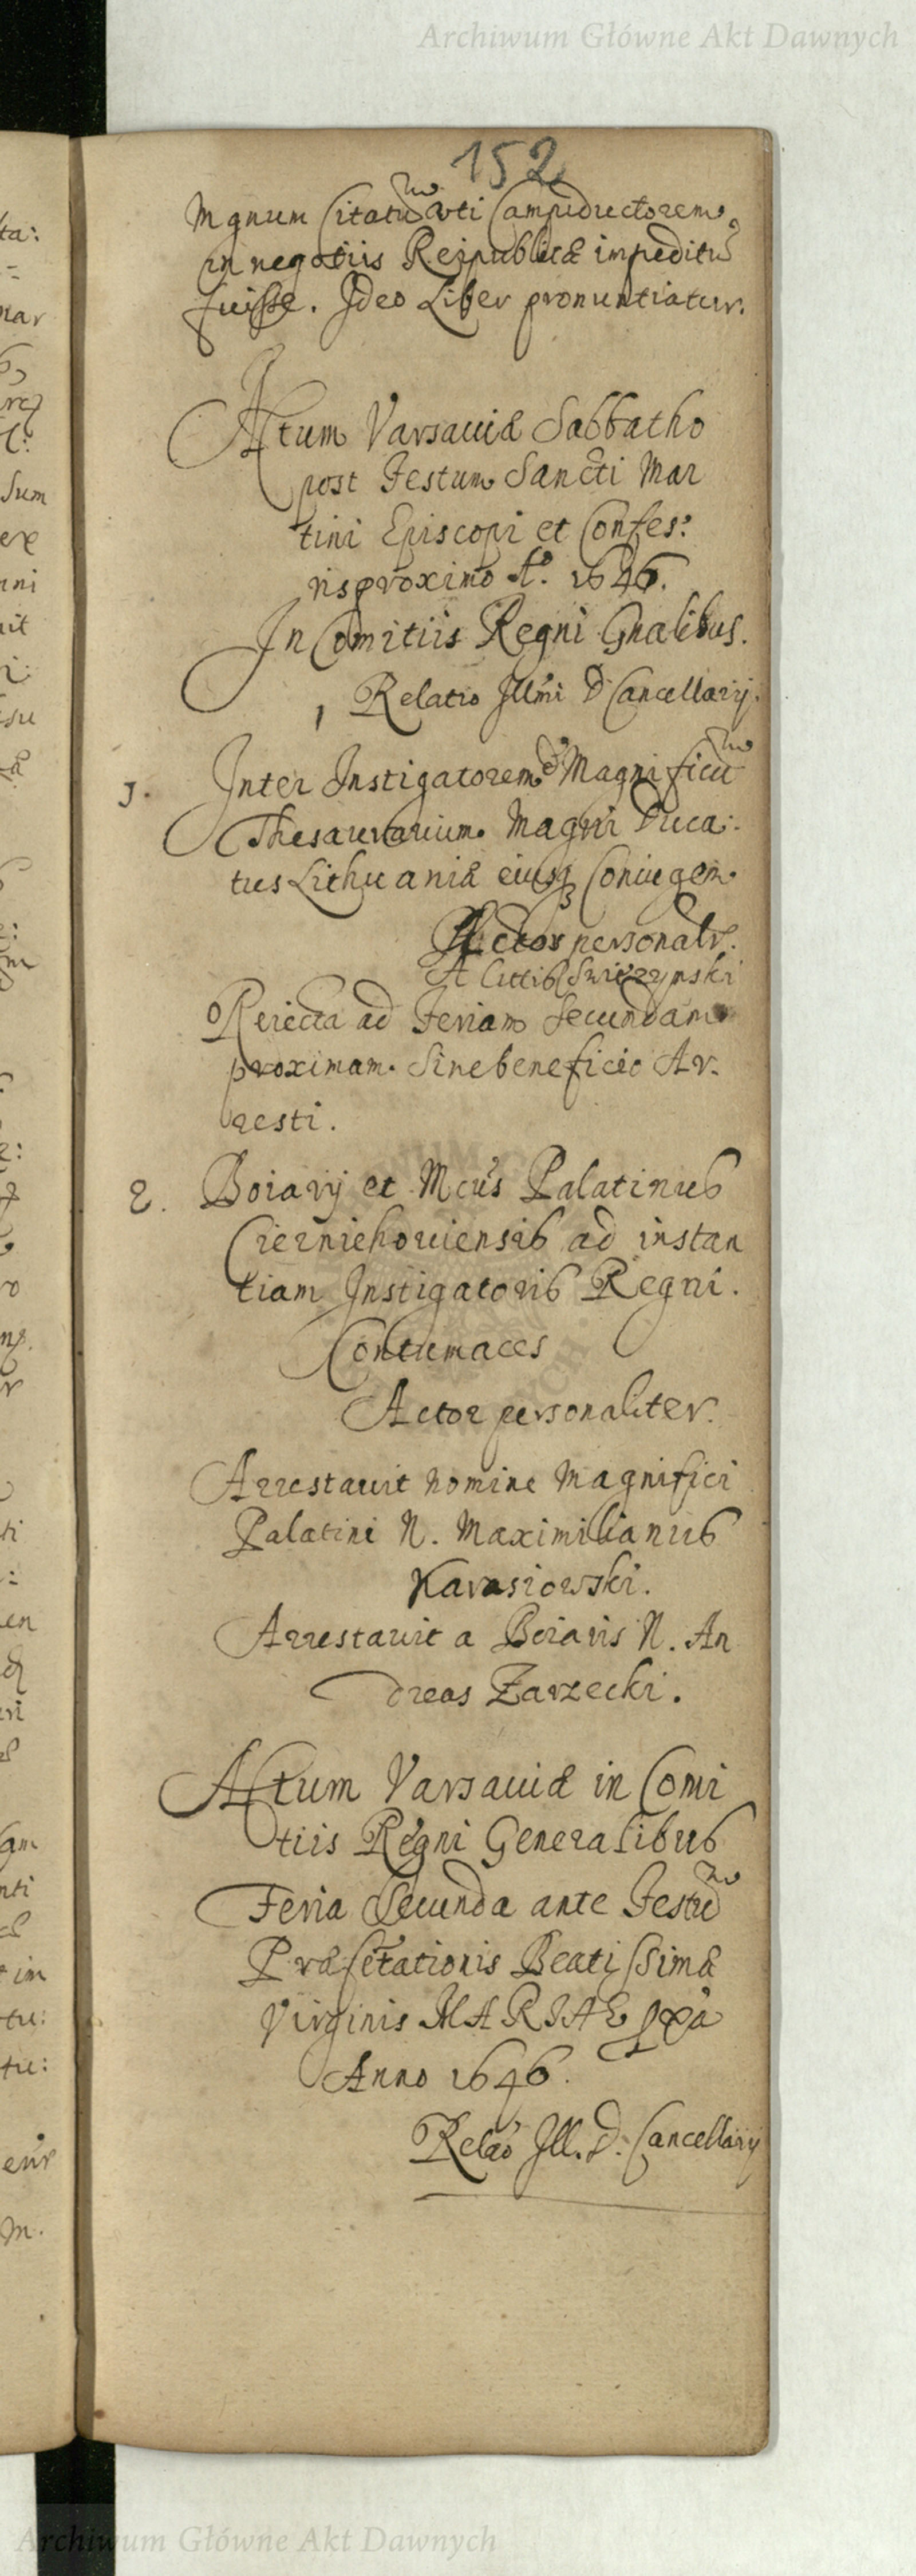 Archiwum Główne Akt Dawnych
152
Mgnum Citatū uti Campiductorem
in negotiis Reipublicæ impeditū
fuisse. Ideo Liber pronuntiatur.
Actum Varsaviæ Sabbatho
post Festum Sancti Mar
tini Episcopi et Confes:
ris proximo Aº. 1646.
In Comitiis Regni Gnalibus.
Relatio Illmi D Cancellarij.
1. Inter Instigatorem et Magnificū
Thesaurarium Magni Duca:
tus Lithuaniæ eiusq Coniugem.
Actor personalr.
A Cittis Swirzynski
Reiecta ad Feriam Secundam
proximam. Sine beneficio Ar.
resti.
2. Boiarij et Mcus Palatinus
Cierniehoviensis ad instan
tiam Instigatoris Regni.
Contumaces
Actor personaliter.
Arrestavit nomine Magnifici
Palatini N. Maximilianus
Karasiowski.
Arrestavit a Boiaris N. An
dreas Zarzecki.
Actum Varsaviæ in Comi
tiis Regni Generalibus
Feria Secunda ante Festū
Præsētationis Beatissimæ
Virginis MARIAE pxa
Anno 1646.
Relao Ill. D. Cancellarij
Archiwum Główne Akt Dawnych